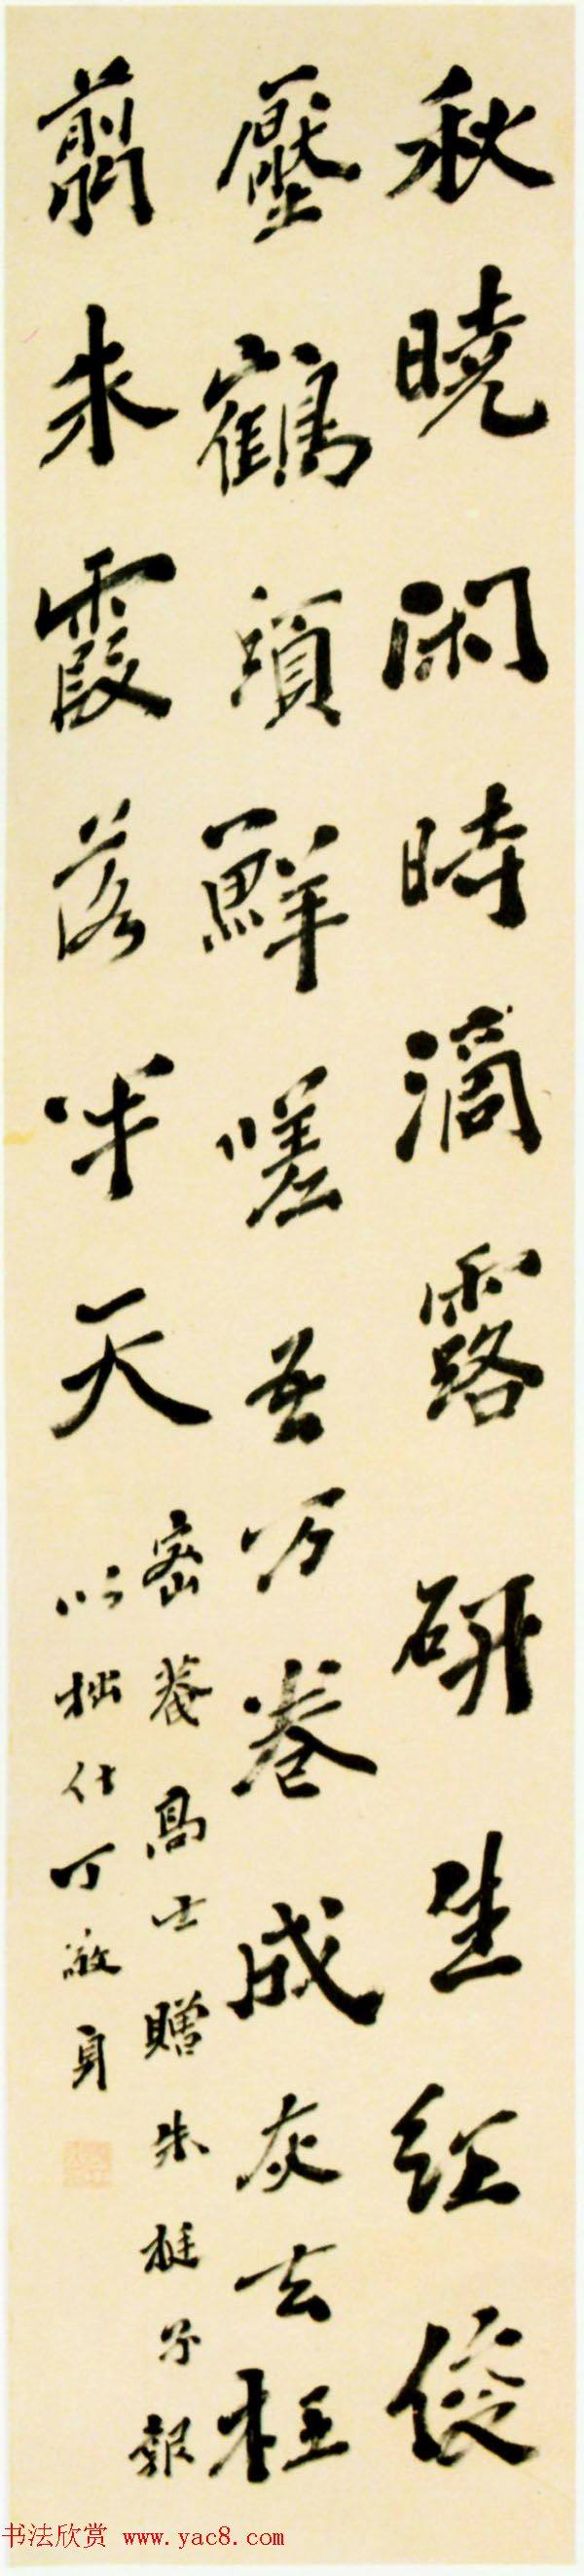 秋曉閑時滴露研生紅俊
壓鶴頂鮮嗟吾萬卷成灰去枉
翦朱霞落半天
密菴高士贈朱梃予報
以拙什丁敬身
书法欣赏 www.yac8.com